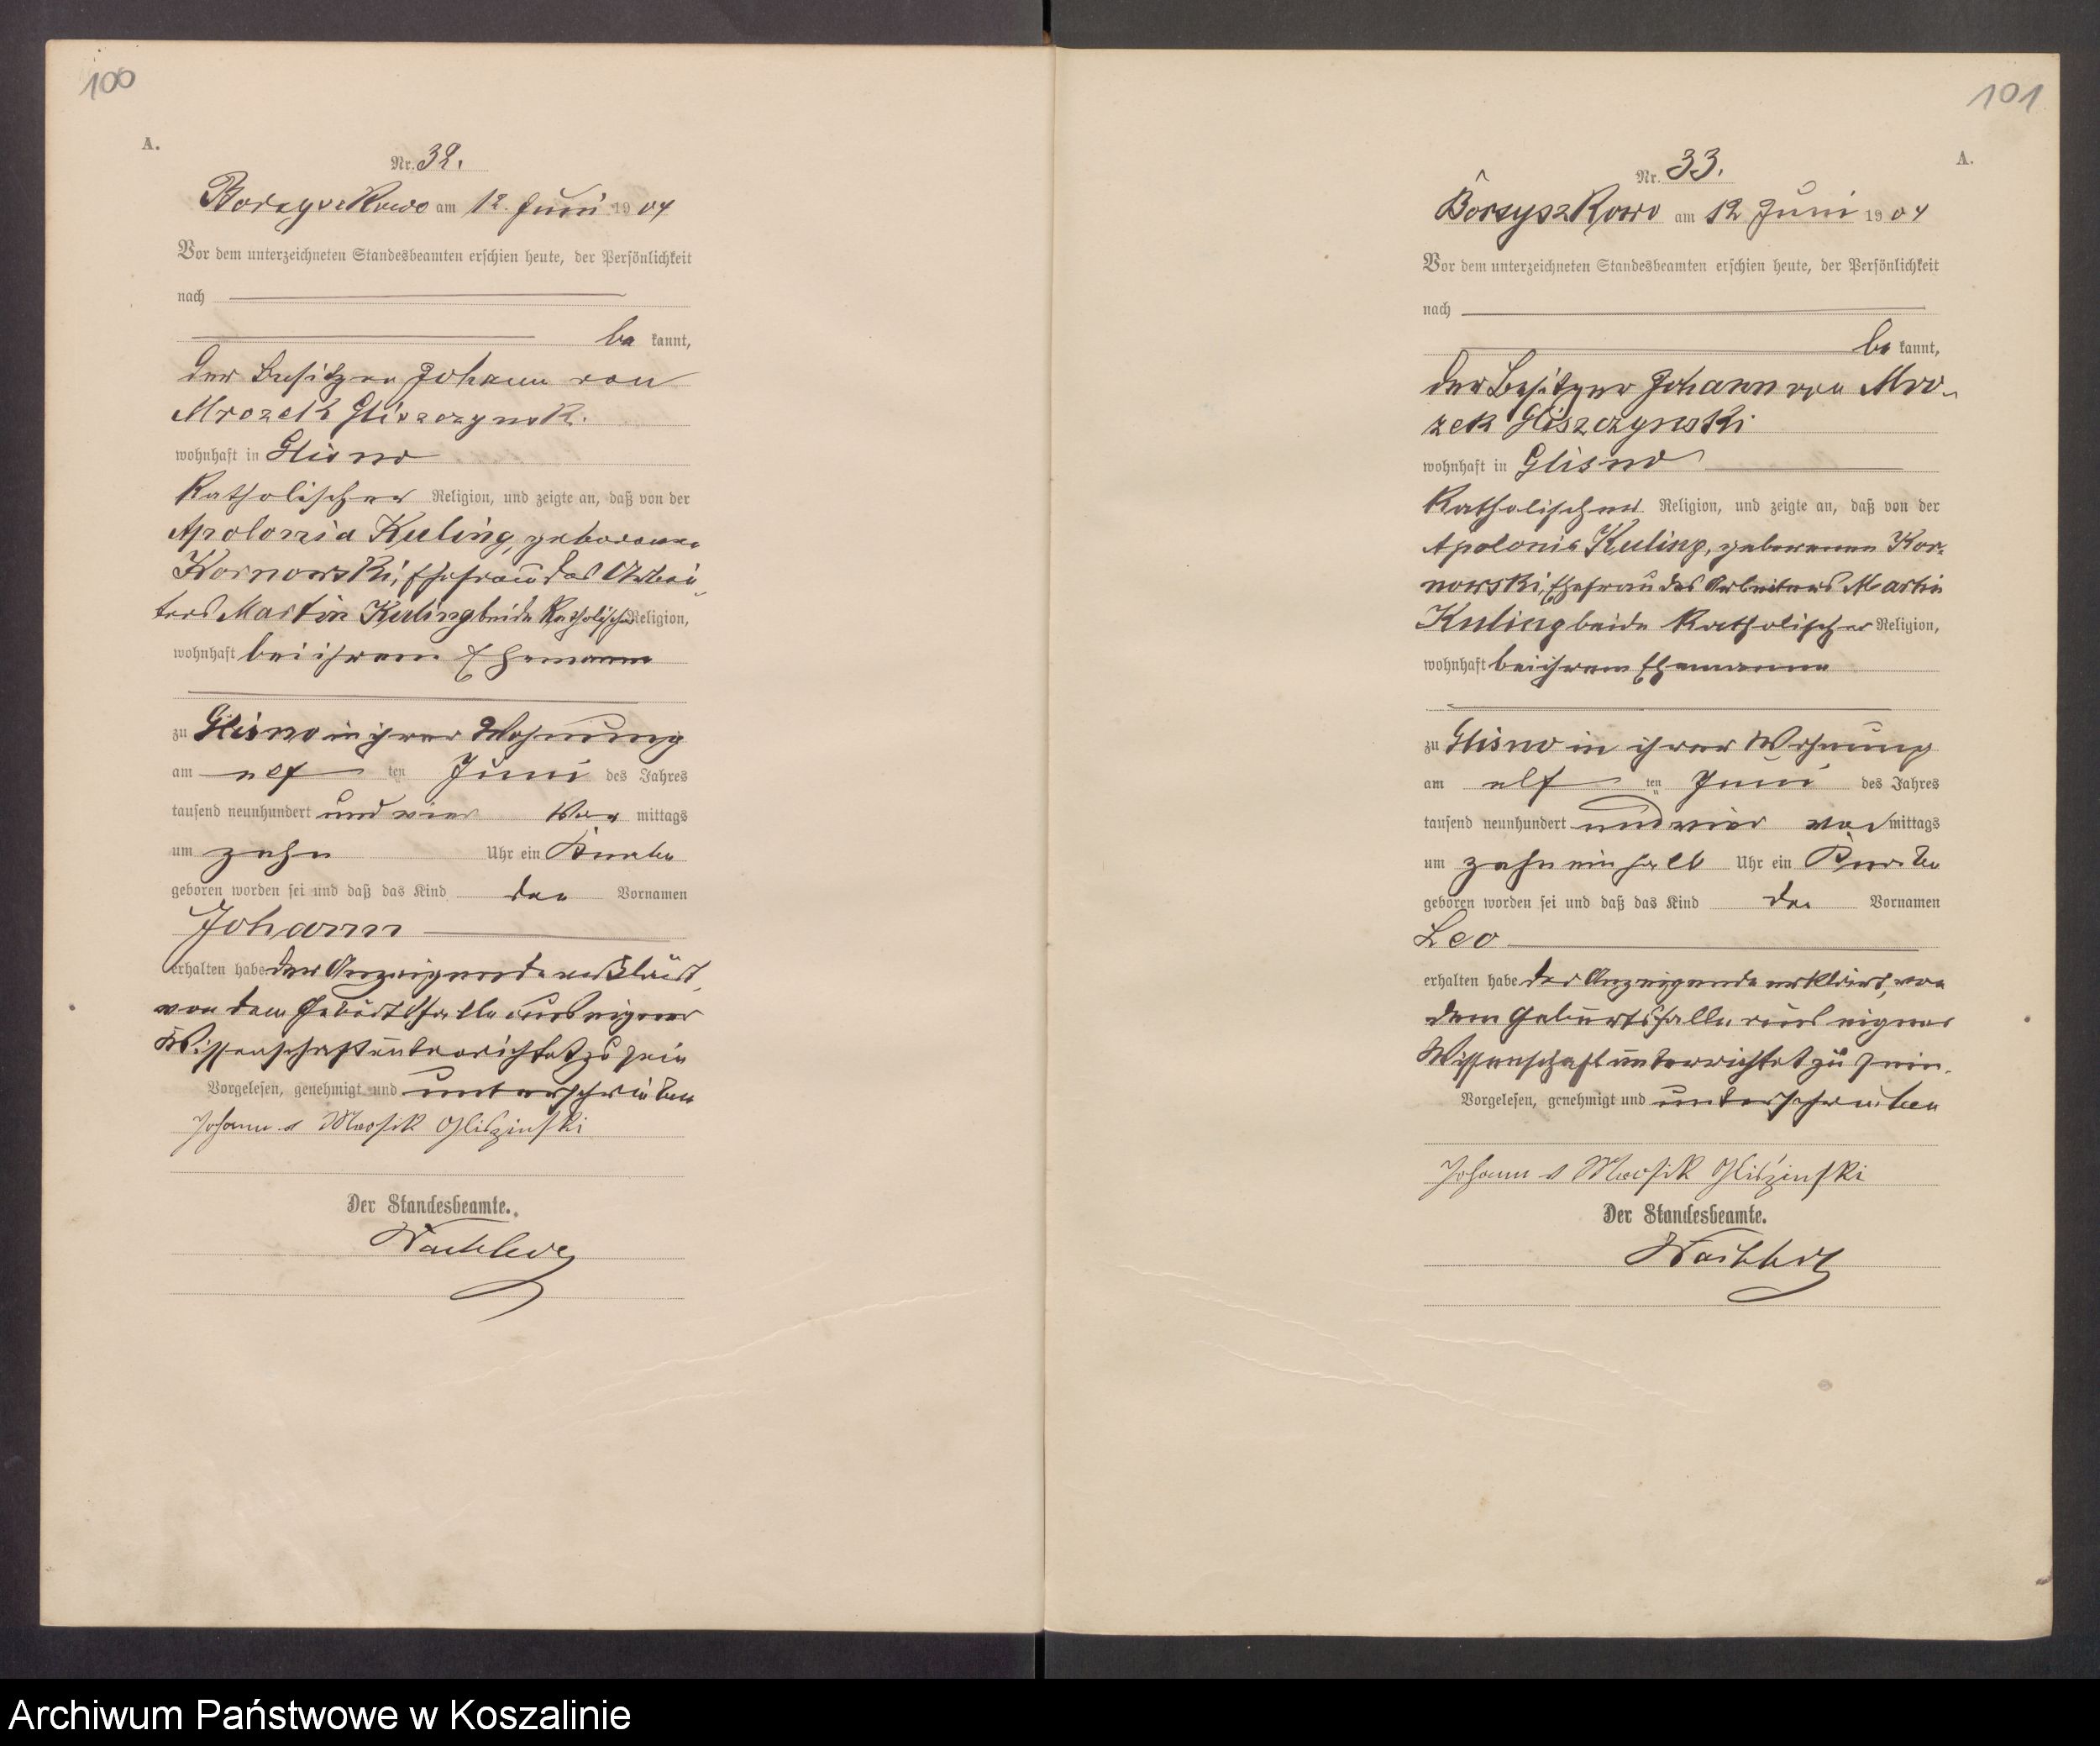 100
A.
Nr. 32.
Borzyszkowo am 12. Juni 1904
Vor dem unterzeichneten Standesbeamten erschien heute, der Persönlichkeit
nach
be kannt,
der Besitzer Johann von
Mrozek Gliszczynski
wohnhaft in Glisno
Katholischer Religion, und zeigte an, daß von der
Apolonia Kuling, geborenen
Kornowski, Ehefrau des Arbei-
ters Martin Kuling beide Katholischer Religion,
wohnhaft bei ihrem Ehemann
zu Glisno in ihrer Wohnung
am elf ten Juni des Jahres
tausend neunhundert und vier Vor mittags
um zehn Uhr ein Knabe
geboren worden sei und daß das Kind den Vornamen
Johann
erhalten habe der Anzeigende erklärt,
von dem Geburtsfalle aus eigner
Wissenschaft unterrichtet zu sein
Vorgelesen, genehmigt und unterschrieben
Johann v Mrosik Glißzinski
Der Standesbeamte.
101
A.
Nr. 33.
Borzyszkowo am 12 Juni 1904
Vor dem unterzeichneten Standesbeamten erschien heute, der Persönlichkeit
nach
be kannt,
der Besitzer Johann von Mro-
zek Gliszczynski
wohnhaft in Glisno
Katholischer Religion, und zeigte an, daß von der
Apolonia Kuling, geborenen Kor-
nowski, Ehefrau des Arbeiters Martin
Kuling beide Katholischer Religion,
wohnhaft bei ihrem Ehemanne
zu Glisno in ihrer Wohnung
am elf ten Juni des Jahres
tausend neunhundert und vier vor mittags
um zehn ein halb Uhr ein Knabe
geboren worden sei und daß das Kind den Vornamen
Leo
erhalten habe der Anzeigende erklärt, von
dem Geburtsfalle aus eigner
Wissenschaft unterrichtet zu sein.
Vorgelesen, genehmigt und unterschrieben
Johann v Mrosik Glißzinski
Der Standesbeamte.
Archiwum Państwowe w Koszalinie